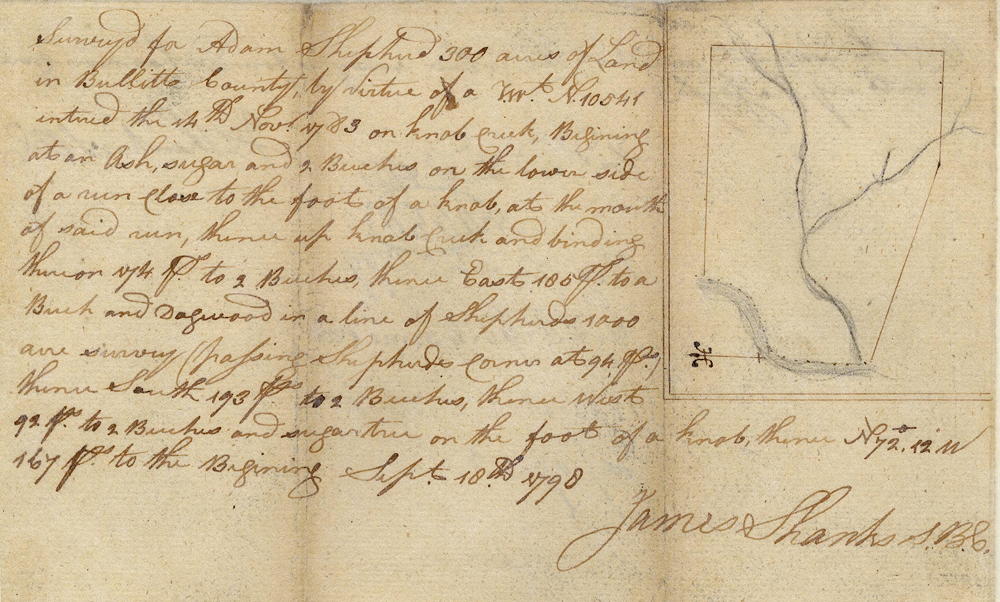 Survey'd for Adam Shepherd 300 acres of Land
in Bullitts County, by virtue of a Wt. N. 10541
entred the 14th Novr. 1783 on knob Creek, Begining
at an Ash, sugar and 2 Buches on the lower side
of a run Close to the foot of a knob, at the mouth
of said run, thence up knob Creek and binding
theron 174 Ps. to 2 Buches, thence East 185 Ps. to a
Buch and Dogwood in a line of Shepherds 1000
acre survey (passing Shepherds Corner at 94 Ps.)
thence South 193 Ps. to 2 Buches, thence West
92 Ps. to 2 Buches and sugartree on the foot of a knob, thence N 72°.12 W
167 Ps. to the Begining Sept. 18th 1798
James Shanks S.B.C.